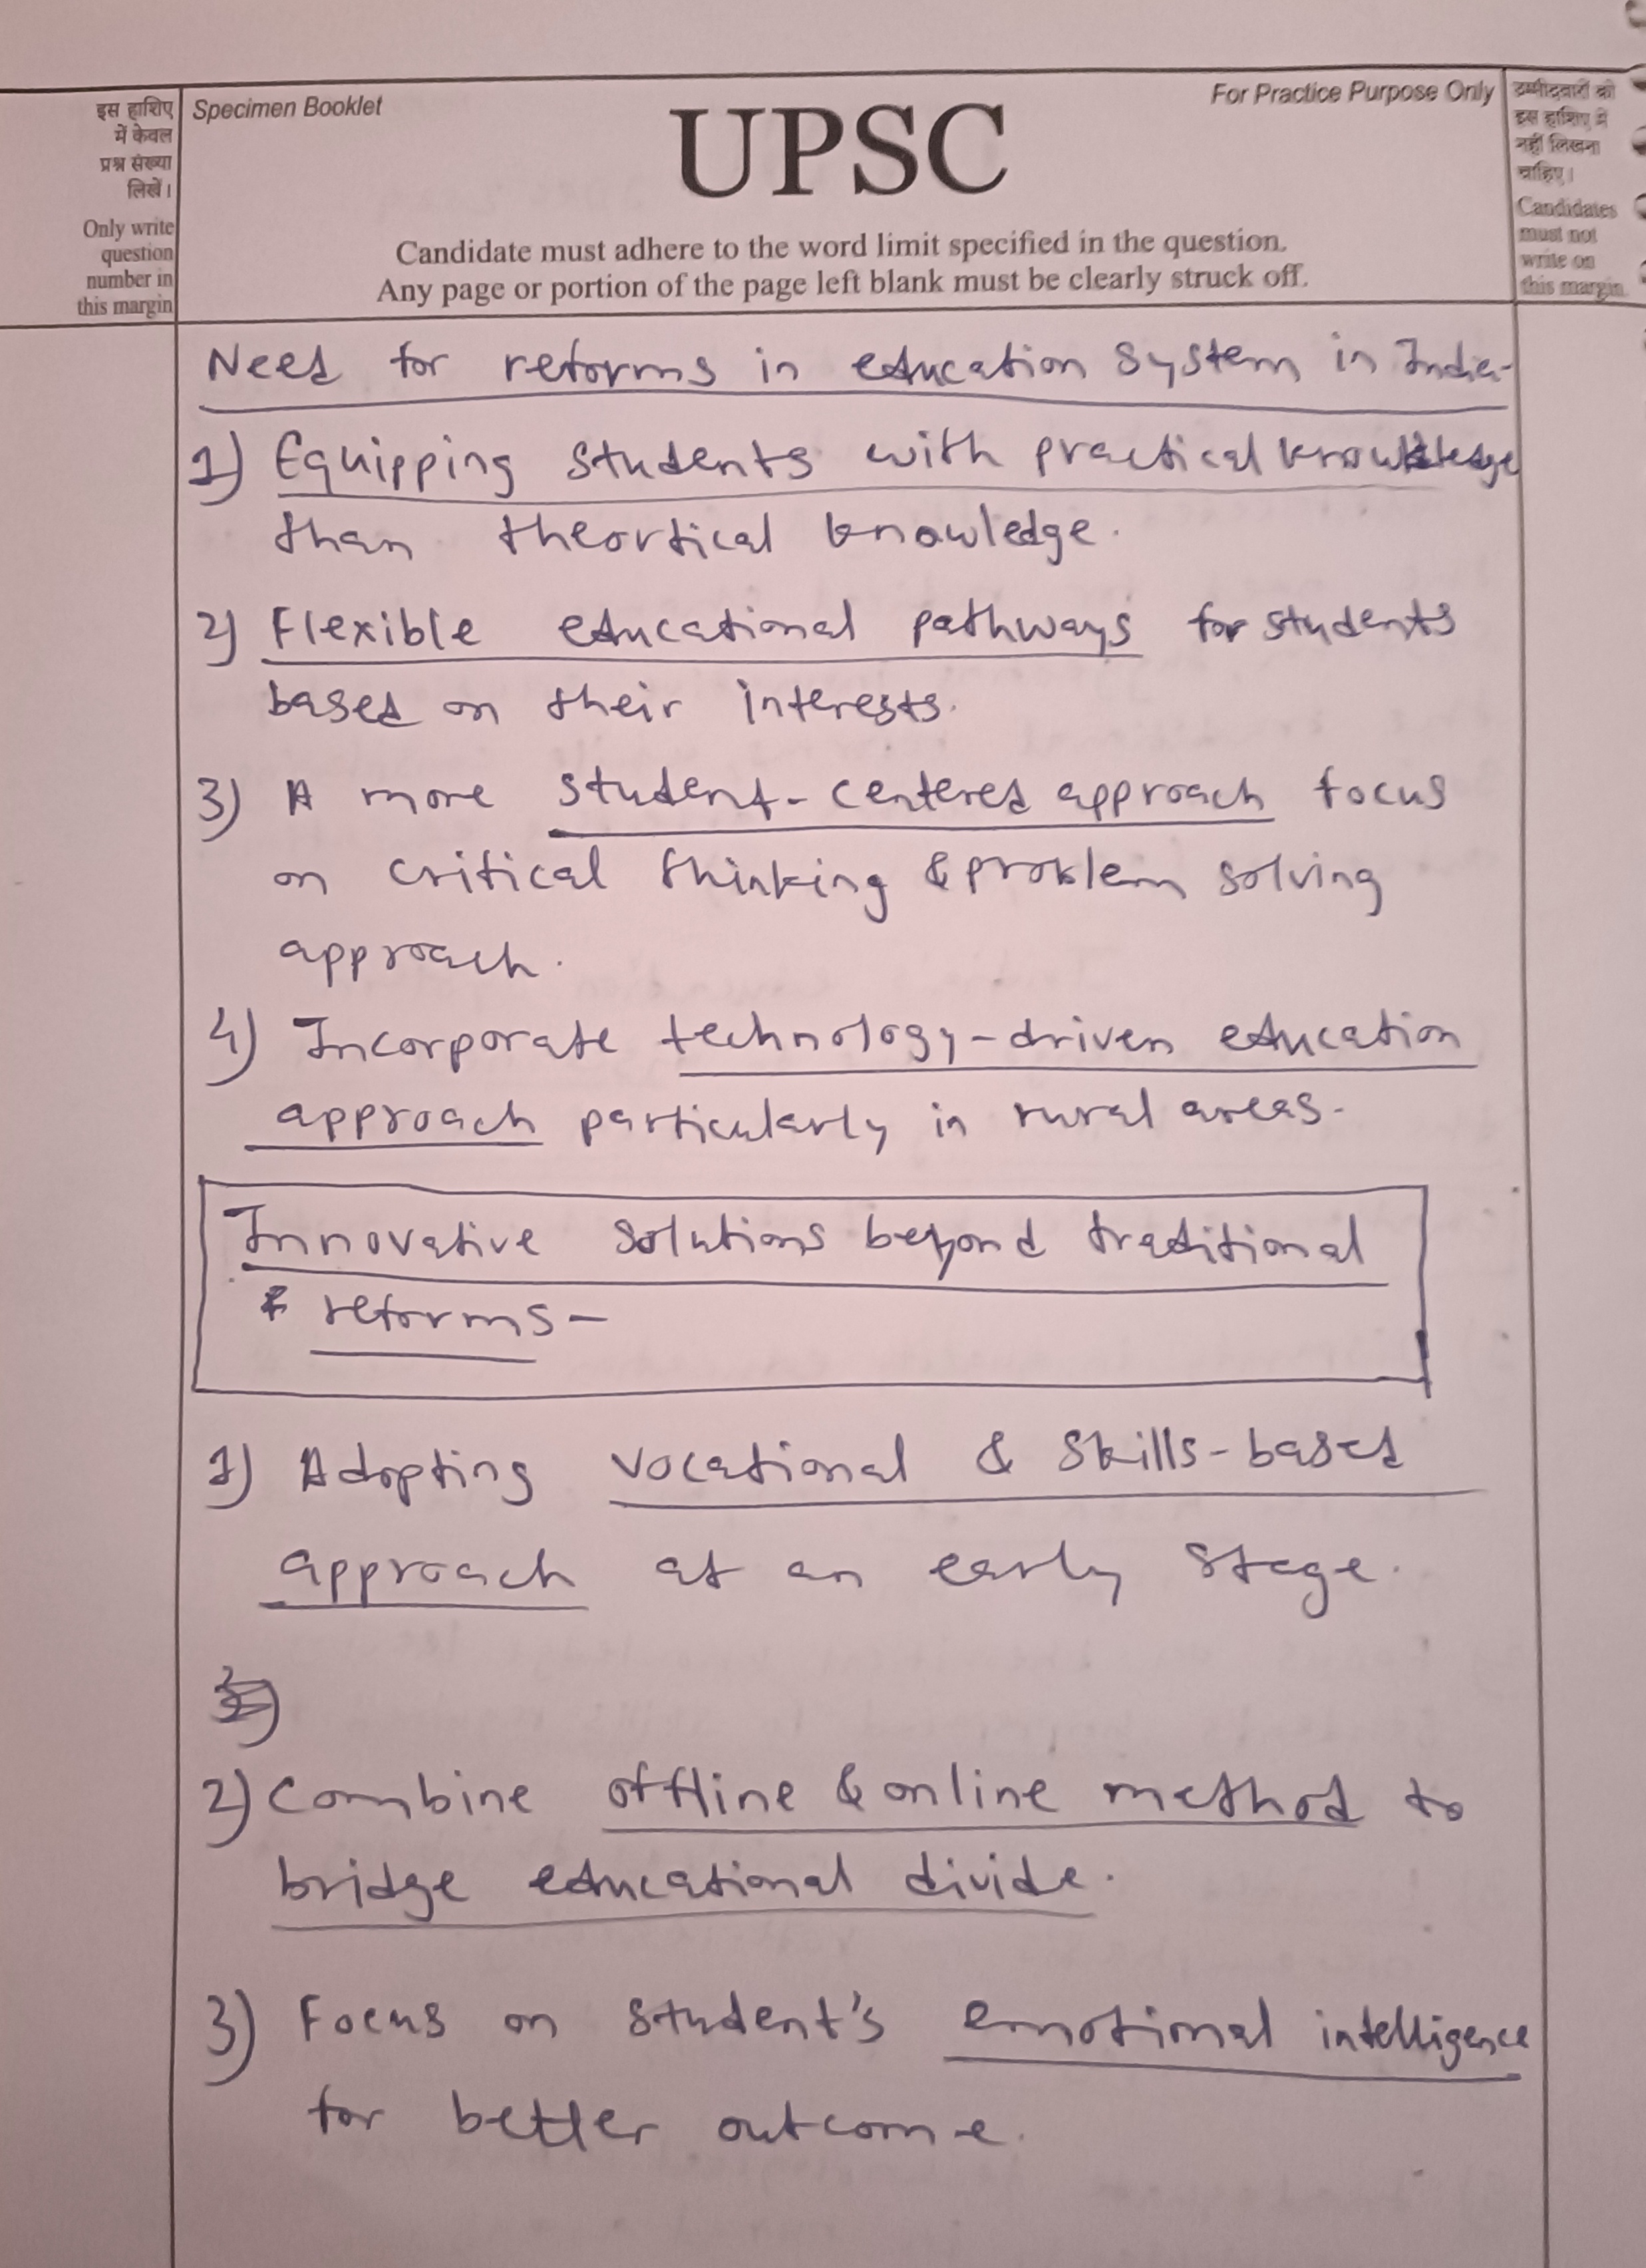 इस हाशिए
में केवल
प्रश्न संख्या
लिखें।
Only write
question
number in
this margin
Specimen Booklet
For Practice Purpose Only
UPSC
Candidate must adhere to the word limit specified in the question.
Any page or portion of the page left blank must be clearly struck off.
उम्मीदवारों को
इस हाशिए में
नहीं लिखना
चाहिए।
Candidates
must not
write on
this margin
Need for reforms in education system in India-
1) Equipping students with practical knowledge
than theortical knowledge.
2) Flexible educational pathways for students
based on their interests.
3) A more student-centered approach focus
on critical thinking & problem solving
approach.
4) Incorporate technology-driven education
approach particularly in rural areas.
Innovative solutions beyond traditional
reforms-
1) Adopting vocational & skills-based
approach at an early stage.
2) Combine offline & online method to
bridge educational divide.
3) Focus on student's emotional intelligence
for better outcome.